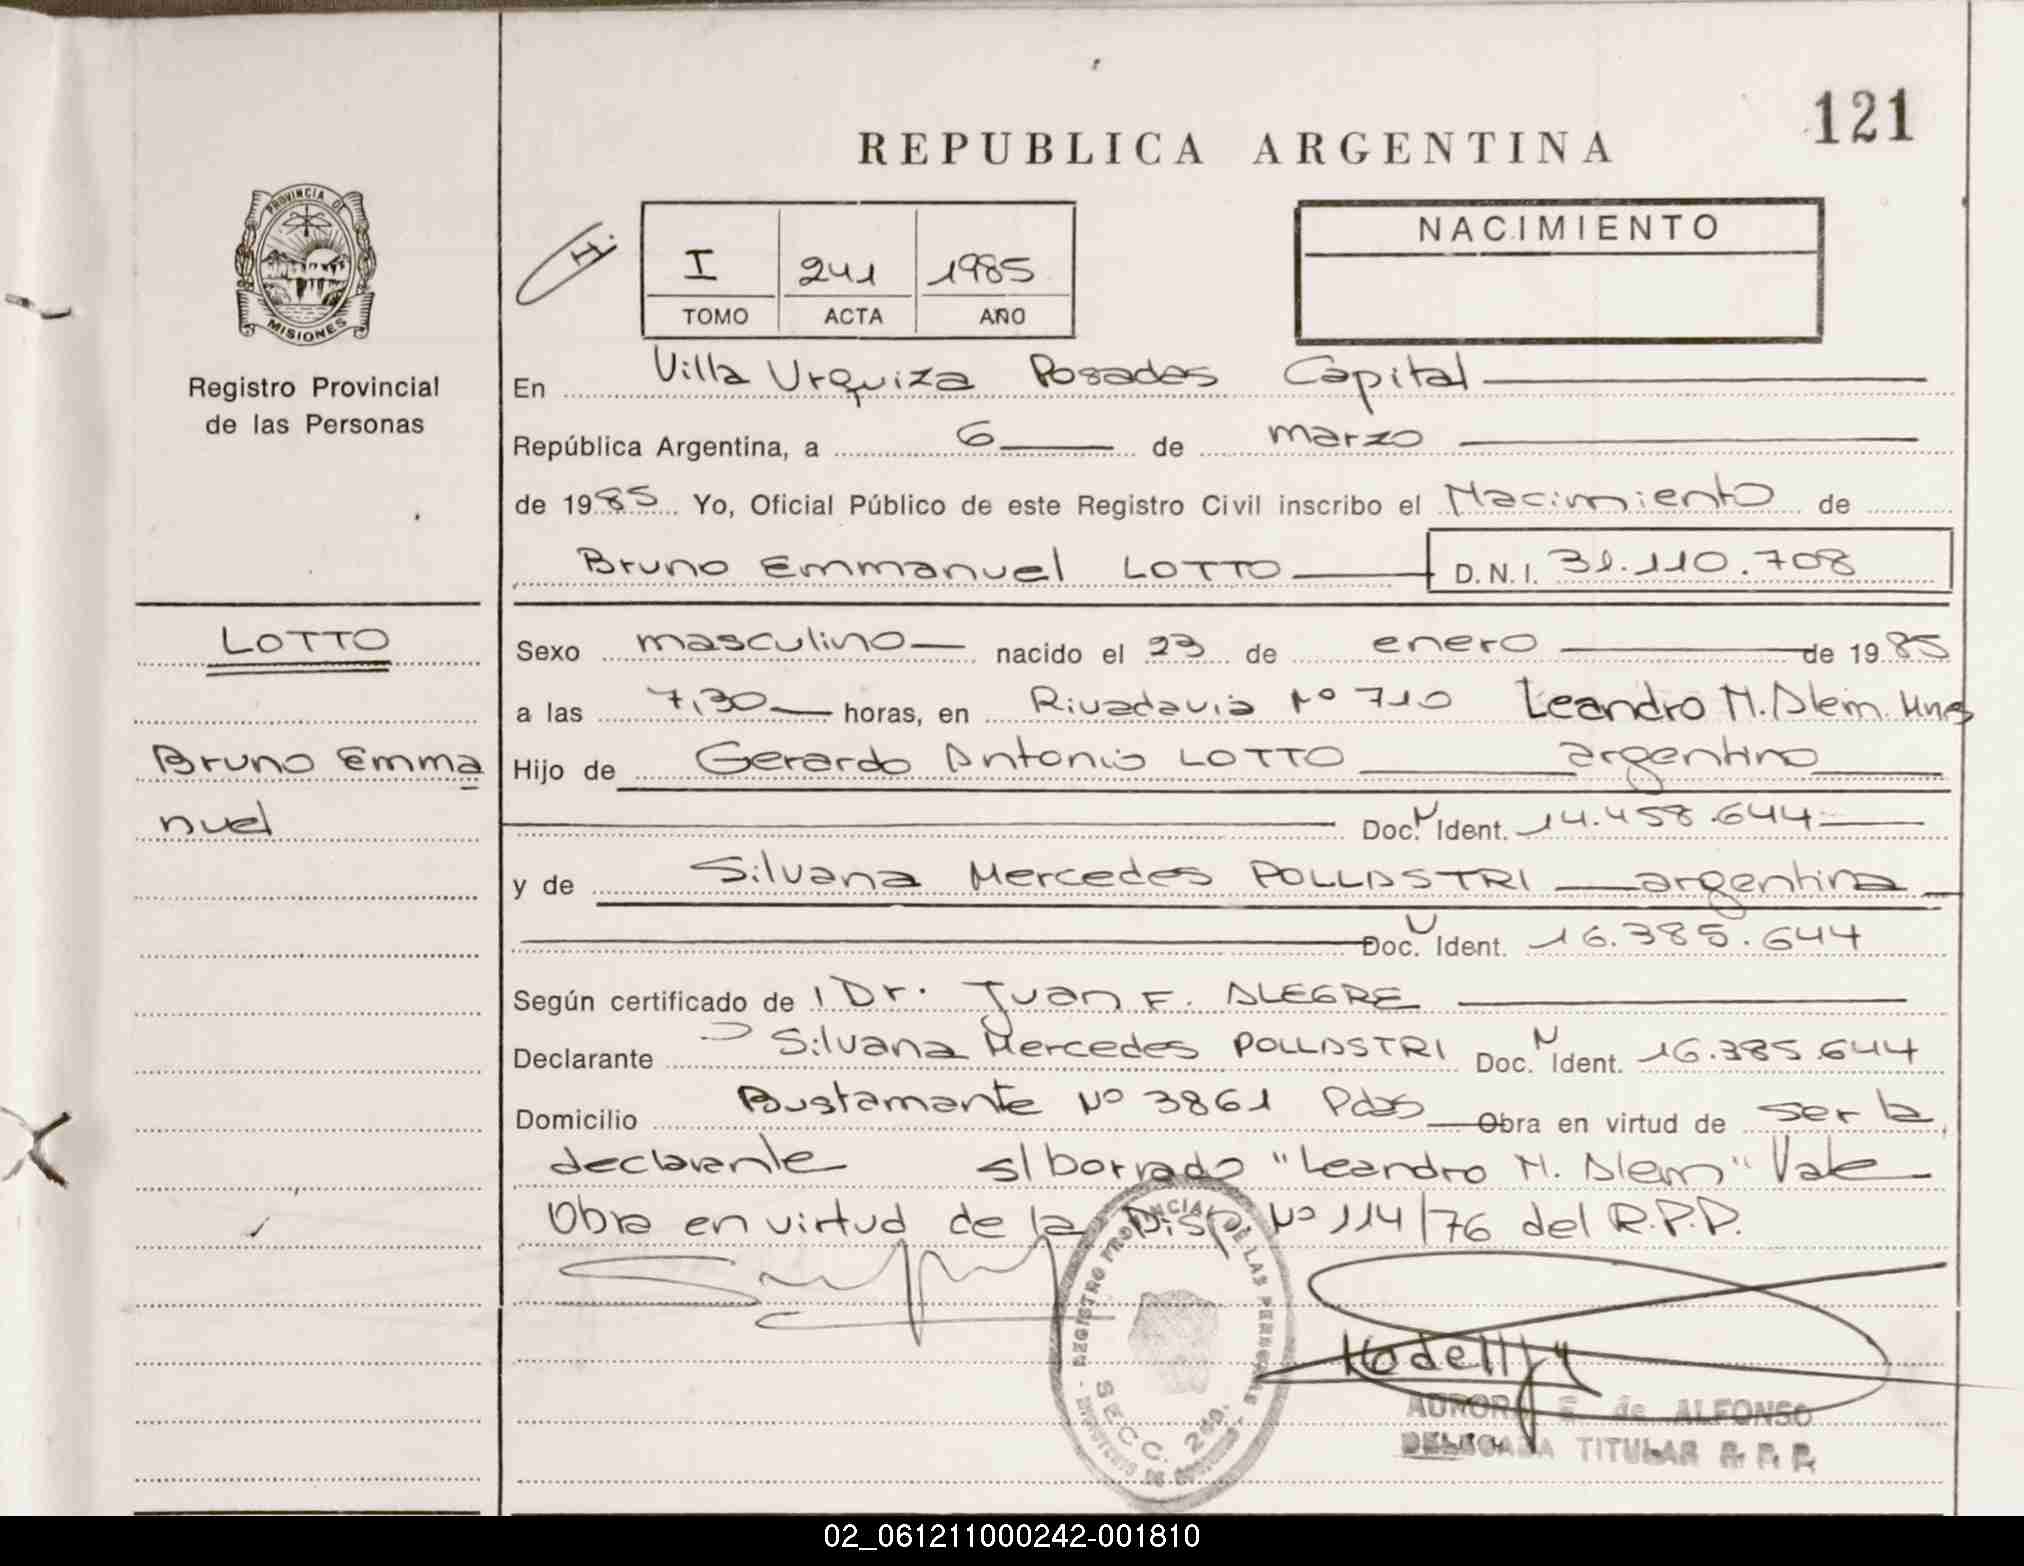 121
REPUBLICA ARGENTINA
PROVINCIA DE
MISIONES
Registro Provincial
de las Personas
I 241 1985
TOMO ACTA AÑO
NACIMIENTO
En Villa Urquiza Posadas Capital
República Argentina, a 6 de marzo
de 1985 Yo, Oficial Público de este Registro Civil inscribo el Nacimiento de
Bruno Emmanuel LOTTO D.N.I. 31.110.708
LOTTO
Bruno Emma
nuel
Sexo masculino nacido el 23 de enero de 1985
a las 7,30 horas, en Rivadavia Nº 710 Leandro N. Alem. Mnes
Hijo de Gerardo Antonio LOTTO argentino
Doc. N Ident. 14.458.644
y de Silvana Mercedes POLLASTRI argentina
Doc. N Ident. 16.385.644
Según certificado de Dr. Juan F. ALEGRE
Declarante Silvana Mercedes POLLASTRI Doc. N Ident. 16.385.644
Domicilio Bustamante Nº 3861 Pdas Obra en virtud de ser la
declarante s/borrado "Leandro N. Alem" Vale
Obra en virtud de la Disp Nº 114/76 del R.P.P.
REGISTRO PROVINCIAL DE LAS PERSONAS
SECC. 2da.
AURORA E. de ALFONSO
DELEGADA TITULAR R. P. P.
02_061211000242-001810